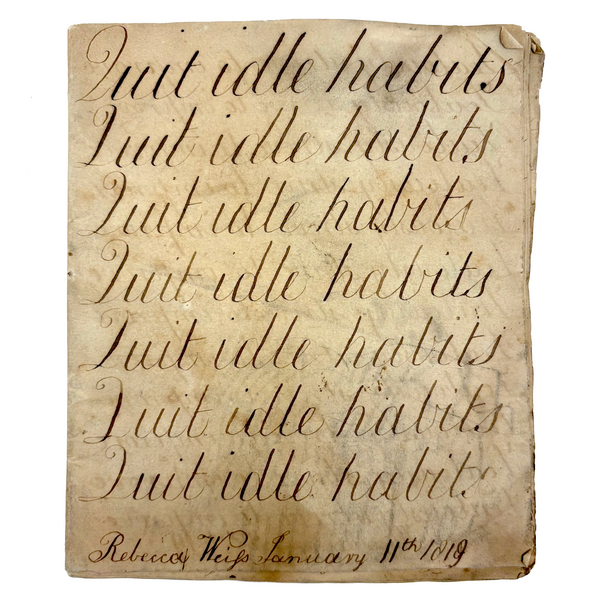 Quit idle habits
Quit idle habits
Quit idle habits
Quit idle habits
Quit idle habits
Quit idle habits
Quit idle habits
Rebecca Weiſs January 11th 1819